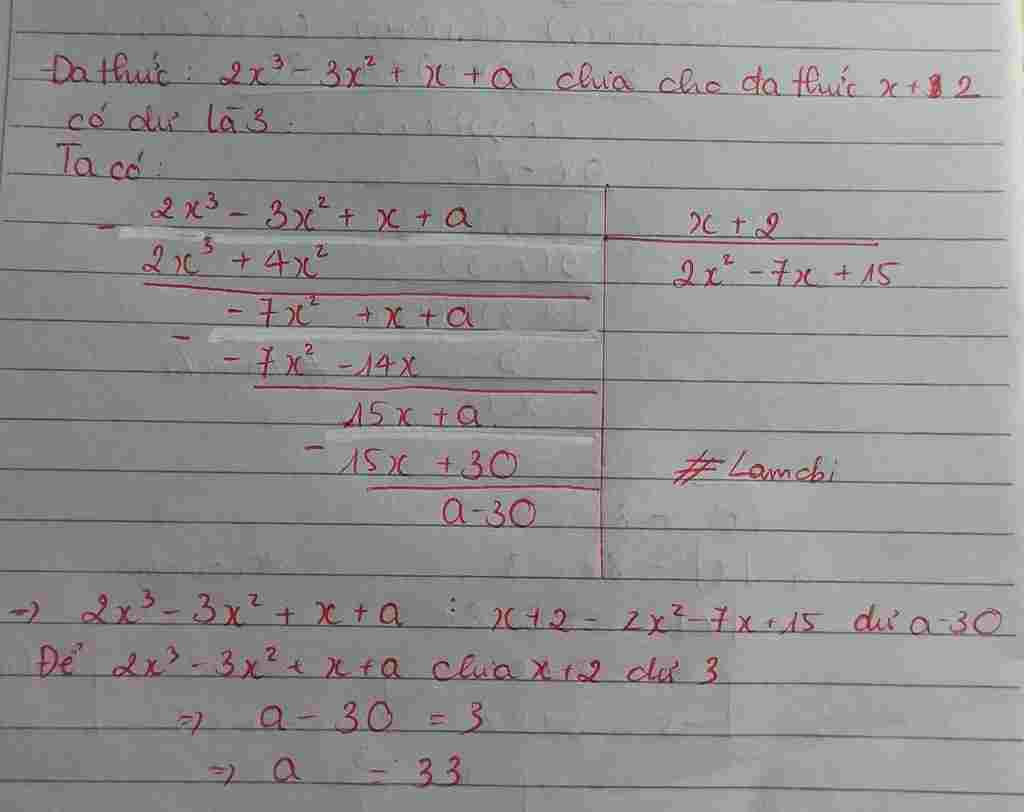 Đa thức: 2x³ - 3x² + x + a chia cho đa thức x + 2
có dư là 3.
Ta có:
- 2x³ - 3x² + x + a x + 2
2x³ + 4x² 2x² - 7x + 15
- 7x² + x + a
- - 7x² - 14x
15x + a
- 15x + 30 #Lamchi
a - 30
=> 2x³ - 3x² + x + a : x + 2 = 2x² - 7x + 15 dư a - 30
Để 2x³ - 3x² + x + a chia x + 2 dư 3
=> a - 30 = 3
=> a = 33